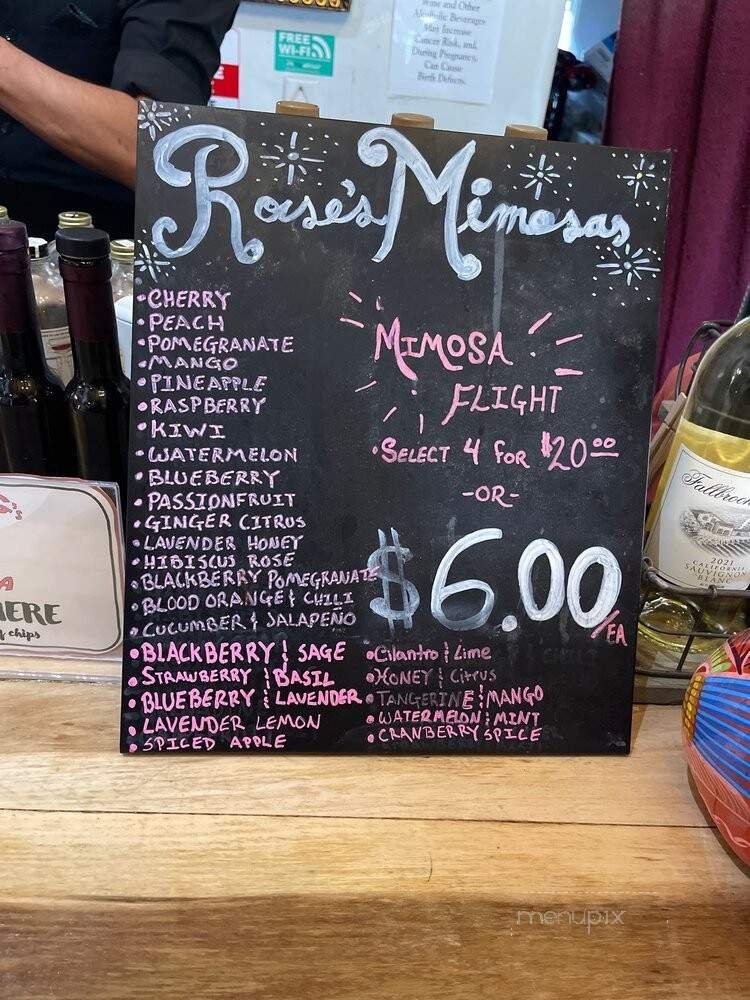 Wine and Other
Alcoholic Beverages
May Increase
Cancer Risk, and,
During Pregnancy,
Can Cause
Birth Defects.
FREE
Wi-Fi
Rose's Mimosas
•CHERRY
•PEACH
•POMEGRANATE
•MANGO
•PINEAPPLE
•RASPBERRY
•KIWI
•WATERMELON
•BLUEBERRY
•PASSIONFRUIT
•GINGER CITRUS
•LAVENDER HONEY
•HIBISCUS ROSE
•BLACKBERRY POMEGRANATE
•BLOOD ORANGE & CHILI
•CUCUMBER & JALAPEÑO
•BLACKBERRY & SAGE
•STRAWBERRY & BASIL
•BLUEBERRY & LAVENDER
•LAVENDER LEMON
•SPICED APPLE
MIMOSA
FLIGHT
•SELECT 4 FOR $20.00
-OR-
$6.00/EA
•Cilantro & Lime
•HONEY & Citrus
•TANGERINE & MANGO
•WATERMELON & MINT
•CRANBERRY SPICE
A
HERE
chips
Fallbrook
2021
CALIFORNIA
SAUVIGNON
BLANC
menupix